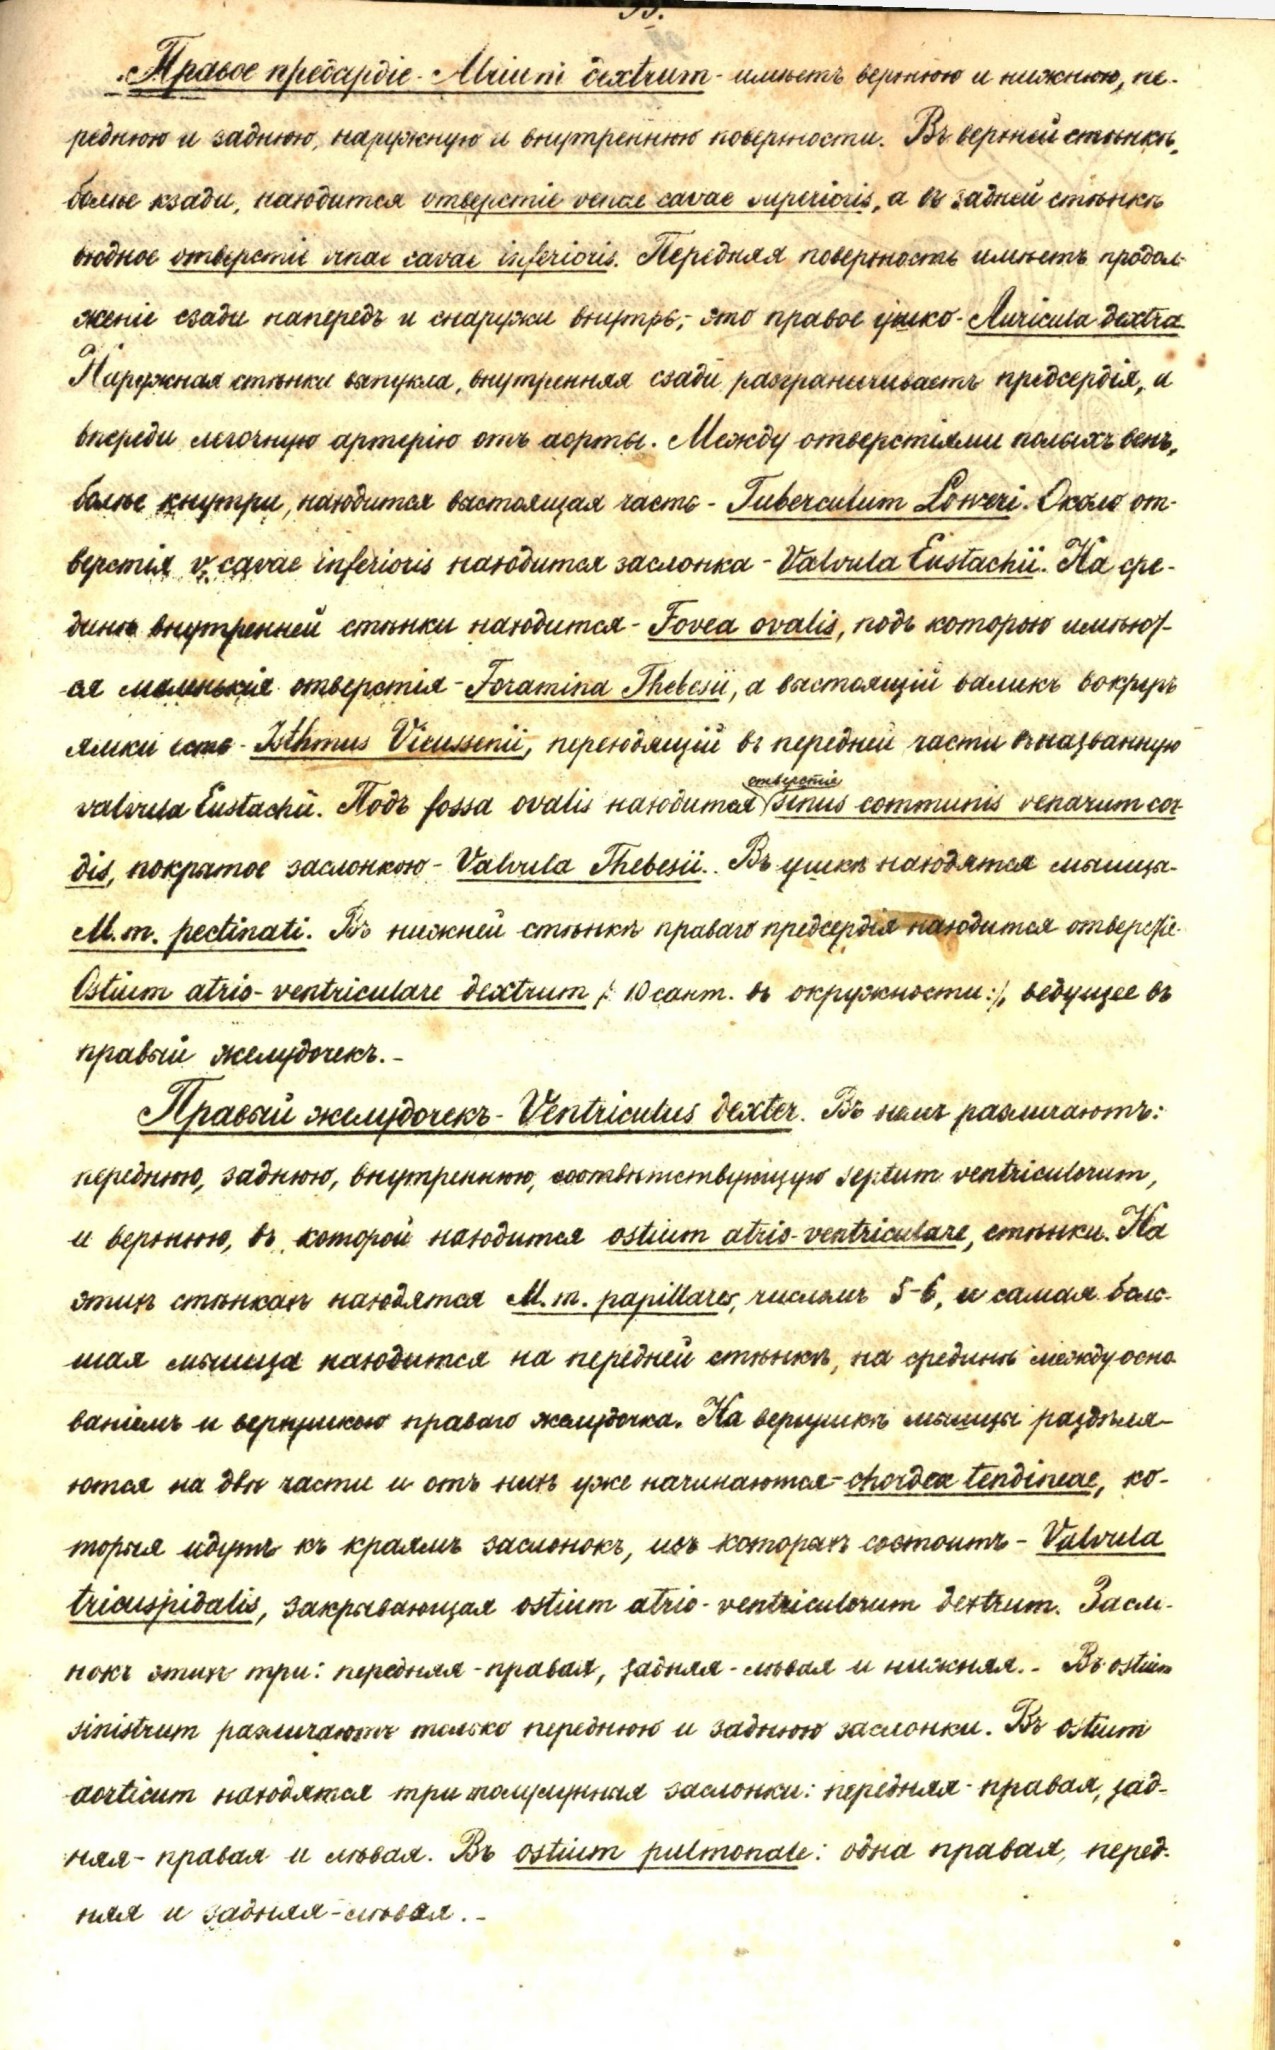 Правое предсердіе - Atrium dextrum - имѣетъ верхнюю и нижнюю, пе-
реднюю и заднюю, наружную и внутреннюю поверхности. Въ верхней стѣнкѣ,
болѣе кзади, находится отверстіе venae cavae superioris, а въ задней стѣнкѣ
входное отверстіе venae cavae inferioris. Передняя поверхность имѣетъ продол-
женіе сзади напередъ и снаружи внутрь; это правое ушко - Auricula dextra.
Наружная стѣнка выпукла, внутренняя сзади разграничиваетъ предсердія, и
впереди легочную артерію отъ аорты. Между отверстіями полыхъ венъ,
болѣе кнутри, находится выстоящая часть - Tuberculum Loweri. Около от-
верстія v. cavae inferioris находится заслонка - Valvula Eustachii. На сре-
динѣ внутренней стѣнки находится - Fovea ovalis, подъ которою имѣют-
ся маленькія отверстія - Foramina Thebesii, а выстоящій валикъ вокругъ
ямки есть - Isthmus Vieussenii, переходящій въ передней части въ названную
valvula Eustachii. Подъ fossa ovalis находится отверстіе sinus communis venarum cor-
dis, покрытое заслонкою - Valvula Thebesii. Въ ушкѣ находятся мышцы-
M.m. pectinati. Въ нижней стѣнкѣ праваго предсердія находится отверстіе-
Ostium atrio-ventriculare dextrum /: 10 сант. въ окружности :/, ведущее въ
правый желудочекъ. -
Правый желудочекъ - Ventriculus dexter. Въ немъ различаютъ:
переднюю, заднюю, внутреннюю, соотвѣтствующую septum ventriculorum,
и верхнюю, въ которой находится ostium atrio-ventriculare, стѣнки. На
этихъ стѣнкахъ находятся M.m. papillares, числомъ 5-6, и самая боль-
шая мышца находится на передней стѣнкѣ, на срединѣ между осно-
ваніемъ и верхушкою праваго желудочка. На верхушкѣ мышцы раздѣля-
ются на двѣ части и отъ нихъ уже начинаются - chordae tendineae, ко-
торыя идутъ къ краямъ заслонокъ, изъ которыхъ состоитъ - Valvula
tricuspidalis, закрывающая ostium atrio-ventriculorum dextrum. Засло-
нокъ этихъ три: передняя-правая, задняя-лѣвая и нижняя. - Въ ostium
sinistrum различаютъ только переднюю и заднюю заслонки. Въ ostium
aorticum находятся три полулунныя заслонки: передняя-правая, зад-
няя-правая и лѣвая. Въ ostium pulmonale: одна правая, перед-
няя и задняя-лѣвая. -